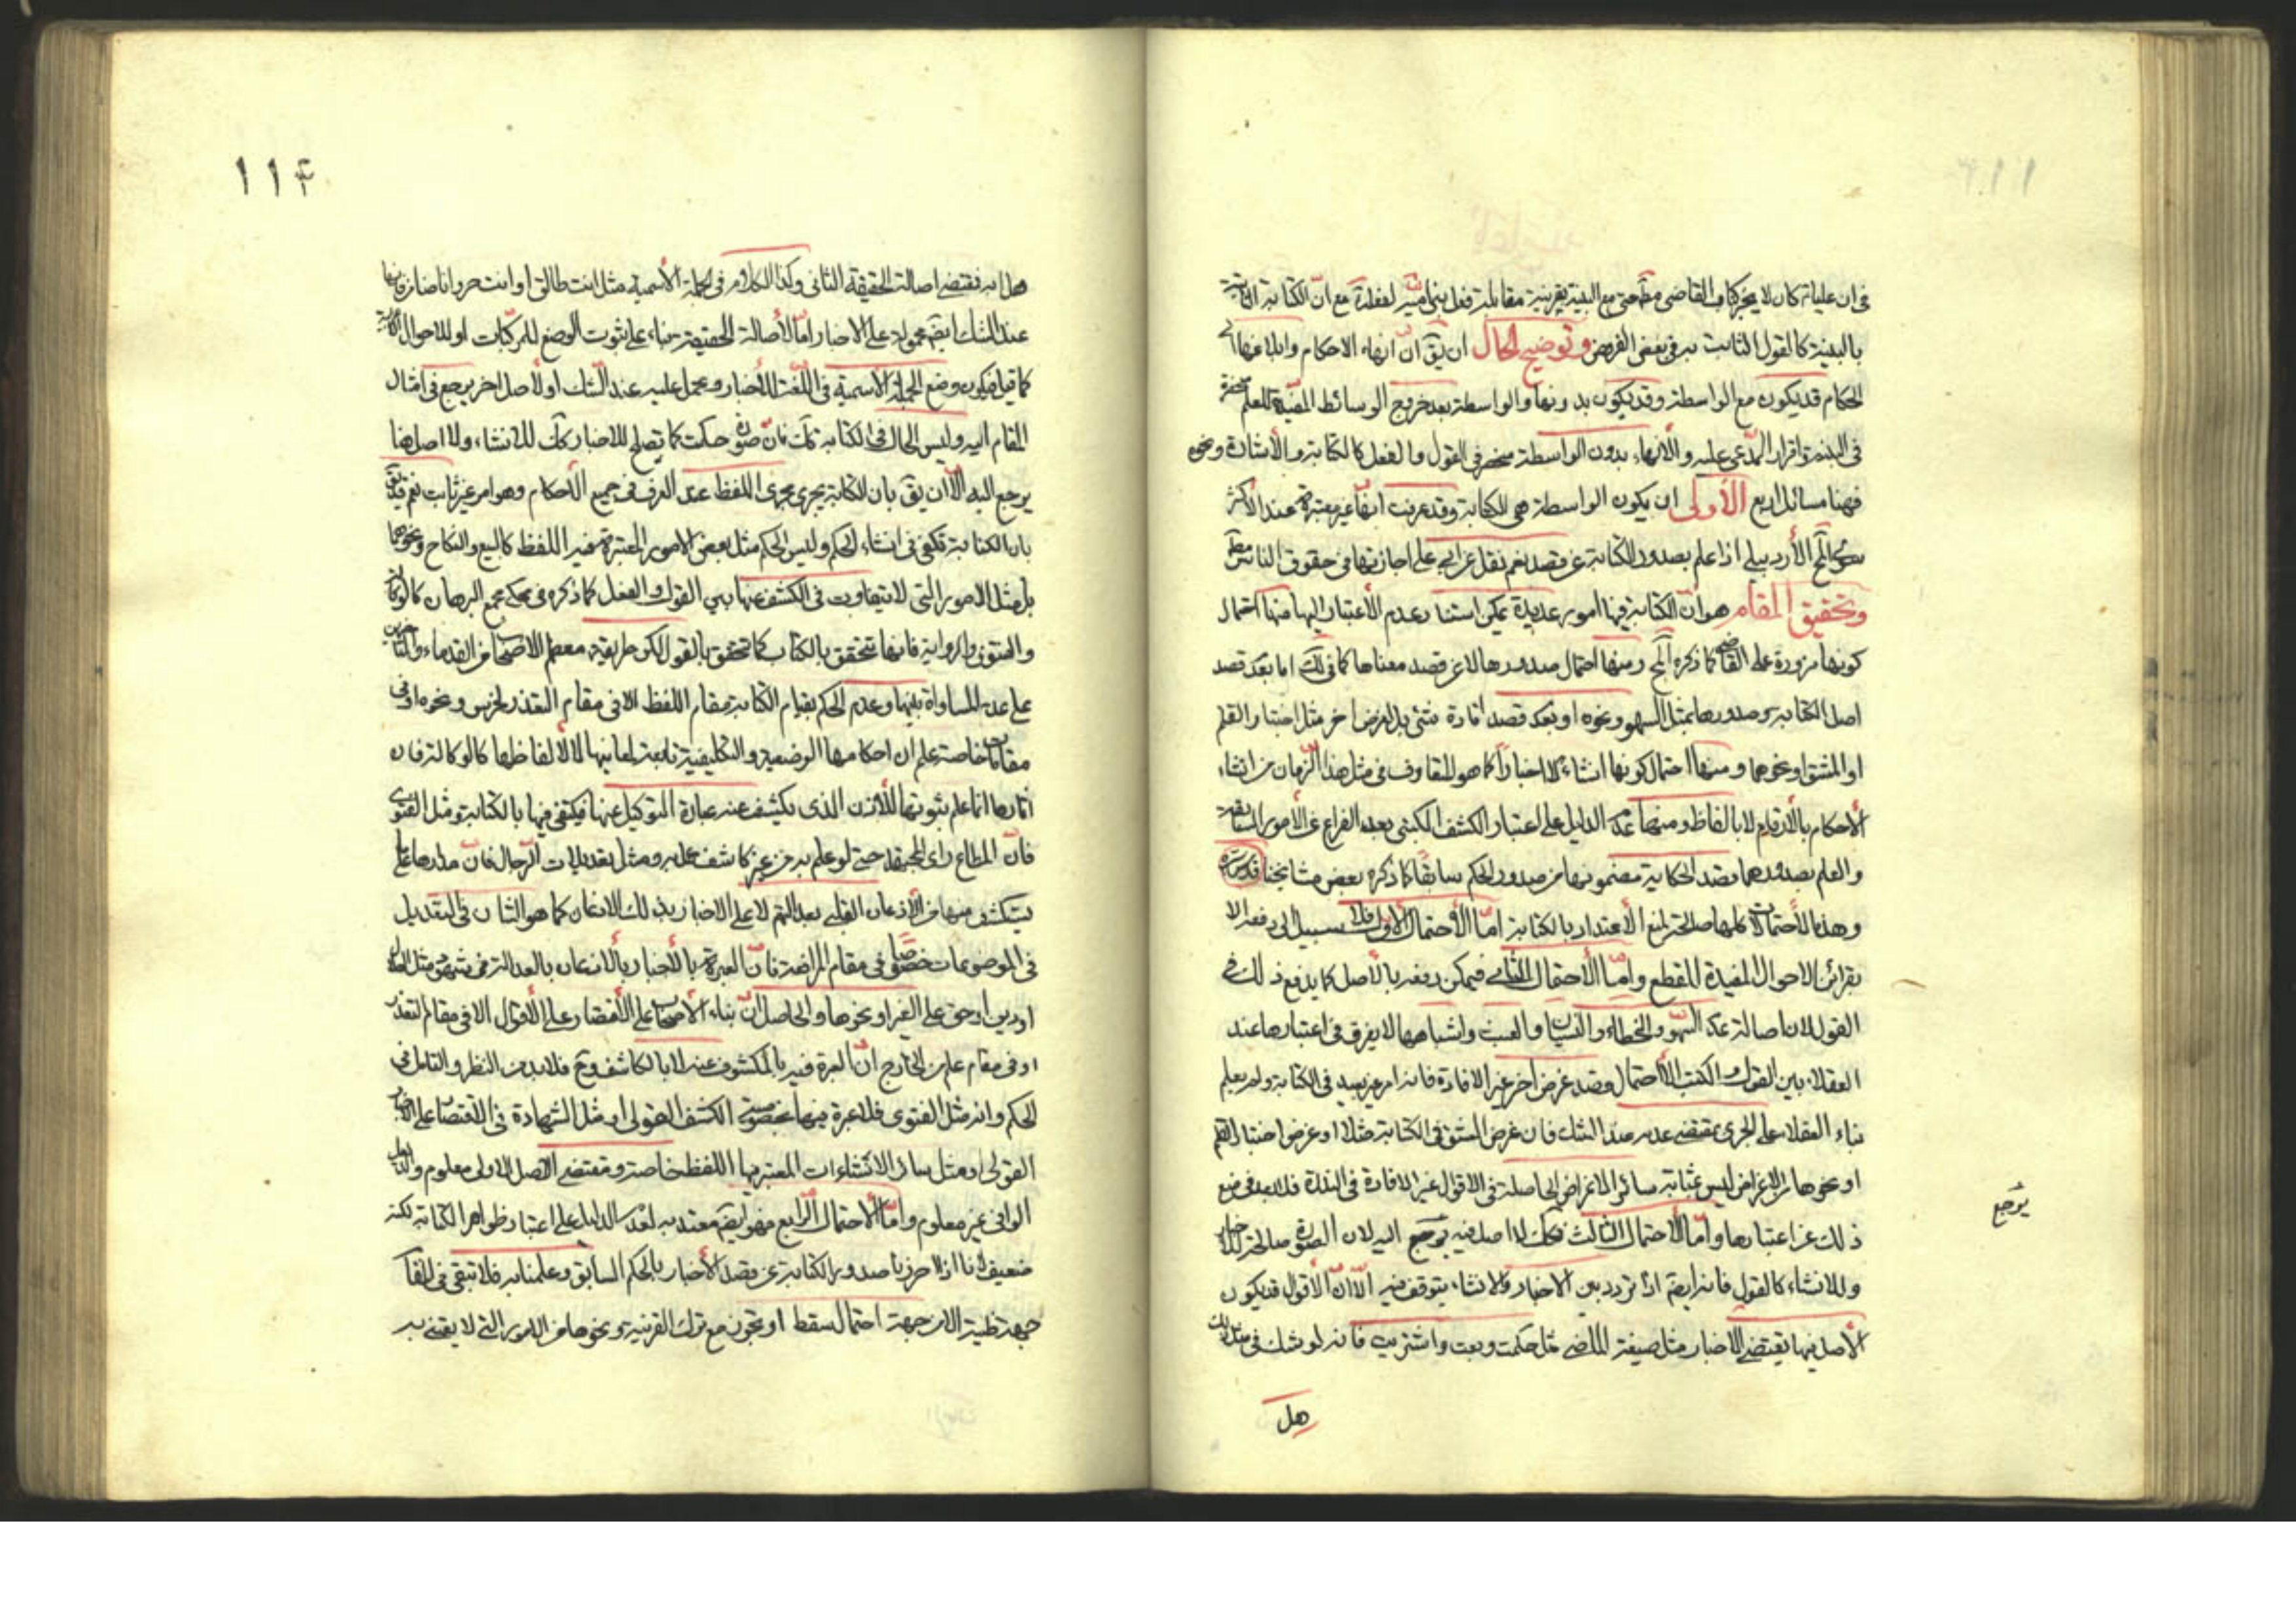 في ان عليا كان لا يجيز كتاب القاضي مع البينة بقرينة مقابلة فعل بني امية لفعله مع ان الكتابة الثابتة
بالبينة كالقول الثابت به في بعض الفروض وتوضيح الحال ان يق ان انهاء الاحكام وابلاغها الى
الحكام قد يكون مع الواسطة وقد يكون بدونها والواسطة بعد خروج الوسائط المفيدة للعلم منحصرة
في البينة واقرار المدعى عليه والانهاء بدون الواسطة منحصر في القول والفعل كالكتابة والاشارة ونحوه
فهنا مسائل اربع الأولى ان يكون الواسطة هي الكتابة وقد عرفت انها غير معتبرة عند الاكثر
سوى المح الأردبيلي اذا علم بصدور الكتابة عن قصد نعم نقل عن ابي علي اجازتها في حقوق الناس مط
وتحقيق المقام هو ان الكتابة فيها امور عديدة يمكن استناد عدم الأعتبار اليها منها احتمال
كونها مزورة على القاضي كما ذكره المح ومنها احتمال صدورها لا عن قصد معناها كما في لك اما بعد قصد
اصل الكتابة وصدورها بمثل السهو ونحوه او بعد قصد افادة شئ بل لغرض اخر مثل اختبار القلم
او المشق او نحوهما ومنها احتمال كونها انشاء لا اخبارا كما هو المتعارف في مثل هذا الزمان من انشاء
الأحكام بالأرقام لا بالفاظ ومنها عدم الدليل على اعتبار الكشف الكتبي بعد الفراغ عن الأمور السابقة
والعلم بصدورها بقصد الحكاية مضمونها من صدور الحكم سابقا كما ذكره بعض مشايخنا قدس سره
وهذه الأحتمالات كلها صالحة لمنع الأعتداد بالكتابة اما الأحتمال الاول فلا سبيل الى دفعه الا
بقرائن الاحوال المفيدة للقطع واما الأحتمال الثاني فيمكن دفعه بالأصل كما يدفع ذلك في
القول لان اصالة عدم السهو والخطاء والنسيان والعبث واشباهها لا يفرق في اعتبارها عند
العقلاء بين القول والكتب الا احتمال قصد غرض اخر غير الافادة فانه امر غير بعيد في الكتابة ولم يعلم
بناء العقلاء على الجرى بمقتضى عدمه عند الشك فان غرض المشق في الكتابة مثلا او غرض اختبار القلم
او نحوها من الاغراض ليس بمثابة سائر الاغراض الحاصلة في الاقوال غير الافادة في الندرة فلا بعد في منع
ذلك عن اعتبارها واما الأحتمال الثالث فكك لا اصل فيه يرجع اليه لان الصورة صالحة للاخبار
وللانشاء كالقول فانه ايضم اذا تردد بين الاخبار والانشاء يتوقف فيه الا ان الأقوال قد يكون
الأصل فيها يقتضي الاخبار مثل صيغة الماضي مثل حكمت وبعت واشتريت فانه لو شك في مثل ذلك
يرجع
هل
١١٤
هل به فمقتضى اصالة الحقيقة الثاني وكذا الكلام في الجملة الأسمية مثل انت طالق او انت حر وانا ضامن فانها
عند الشك ايضم محمولة على الاخبار اما لأصالة الحقيقة بناء على ثبوت الوضع للمركبات او للاحوال
كما قيل فيكون وضع الجملة الاسمية في اللغة للأخبار ويحمل عليه عند الشك او لأصل اخر يرجع في امثال
المقام اليه وليس الحال في الكتابة كك فان صورة حكمت كما يصلح للاخبار كك للانشاء ولا اصل هنا
يرجع اليه الا ان يق بان الكتابة يجرى مجرى اللفظ عند العرف في جميع الأحكام وهو امر غير ثابت نعم قد يق
بان الكتابة تكفى في انشاء الحكم وليس الحكم مثل بعض الامور المعتبرة فيه اللفظ كالبيع والنكاح ونحوهما
بل مثل الامور التي لا يتفاوت في الكشف عنها بين القول والفعل كما ذكره في محكي مجمع البرهان كالوكالة
والفتوى والرواية فانها تتحقق بالكتاب كما تتحقق بالقول لكن طريقة معظم الاصحاب من القدماء والمتاخرين
على عدم المساواة بينهما وعدم الحكم بقيام الكتابة مقام اللفظ الا في مقام التعذر لخرس ونحوه او في
مقامات خاصة علم ان احكامها الوضعية والتكليفية تابعة لمعانيها لا لألفاظها كالوكالة فان
اثارها انما علم ثبوتها للأذن الذي يكشف عنه عبارة التوكيل عنها فيكتفى فيها بالكتابة ومثل الفتوى
فان المطاع راى المجتهد حتى لو علم به من غير كاشف عمل به ومثل تعديلات الرجال فان مدارها على ما
يستكشف منها من الأذعان القلبي بعدالتهم لا على الاخبار بذلك الاذعان كما هو الشان في التعديل
في الموضوعات خصوصا في مقام المرافعة فان العبرة بالأخبار بالأذعان بالعدالة
او دين او حق على الغير او نحوها والحاصل ان بناء الأصحاب على الأقتصار على الأقوال الا في مقام التعذر
او في مقام علم من الخارج ان العبرة فيه بالمكشوف عنه لا بالكاشف وح فلا بد من النظر والتامل في
الحكم وانه مثل الفتوى فلا عبرة فيها بخصوصية الكشف القولى او مثل الشهادة في الاقتصار على الاخبار
القولى او مثل سائر الانشاءات المعتبر فيها اللفظ خاصة ومقتضى الاصل الاولى معلوم والدليل
الوافي غير معلوم واما الاحتمال الرابع فهو ايضم معتد به لعدم الدليل على اعتبار ظواهر الكتابة لكنه
ضعيف لانا اذا احرزنا صدور الكتابة عن قصد الأخبار بالحكم السابق وعلمنا به فلا تبقى في المقام
جهة ظنية الا من جهة احتمال سقط او تجوز مع ترك القرينة ونحوها من الامور التي لا يعتنى به